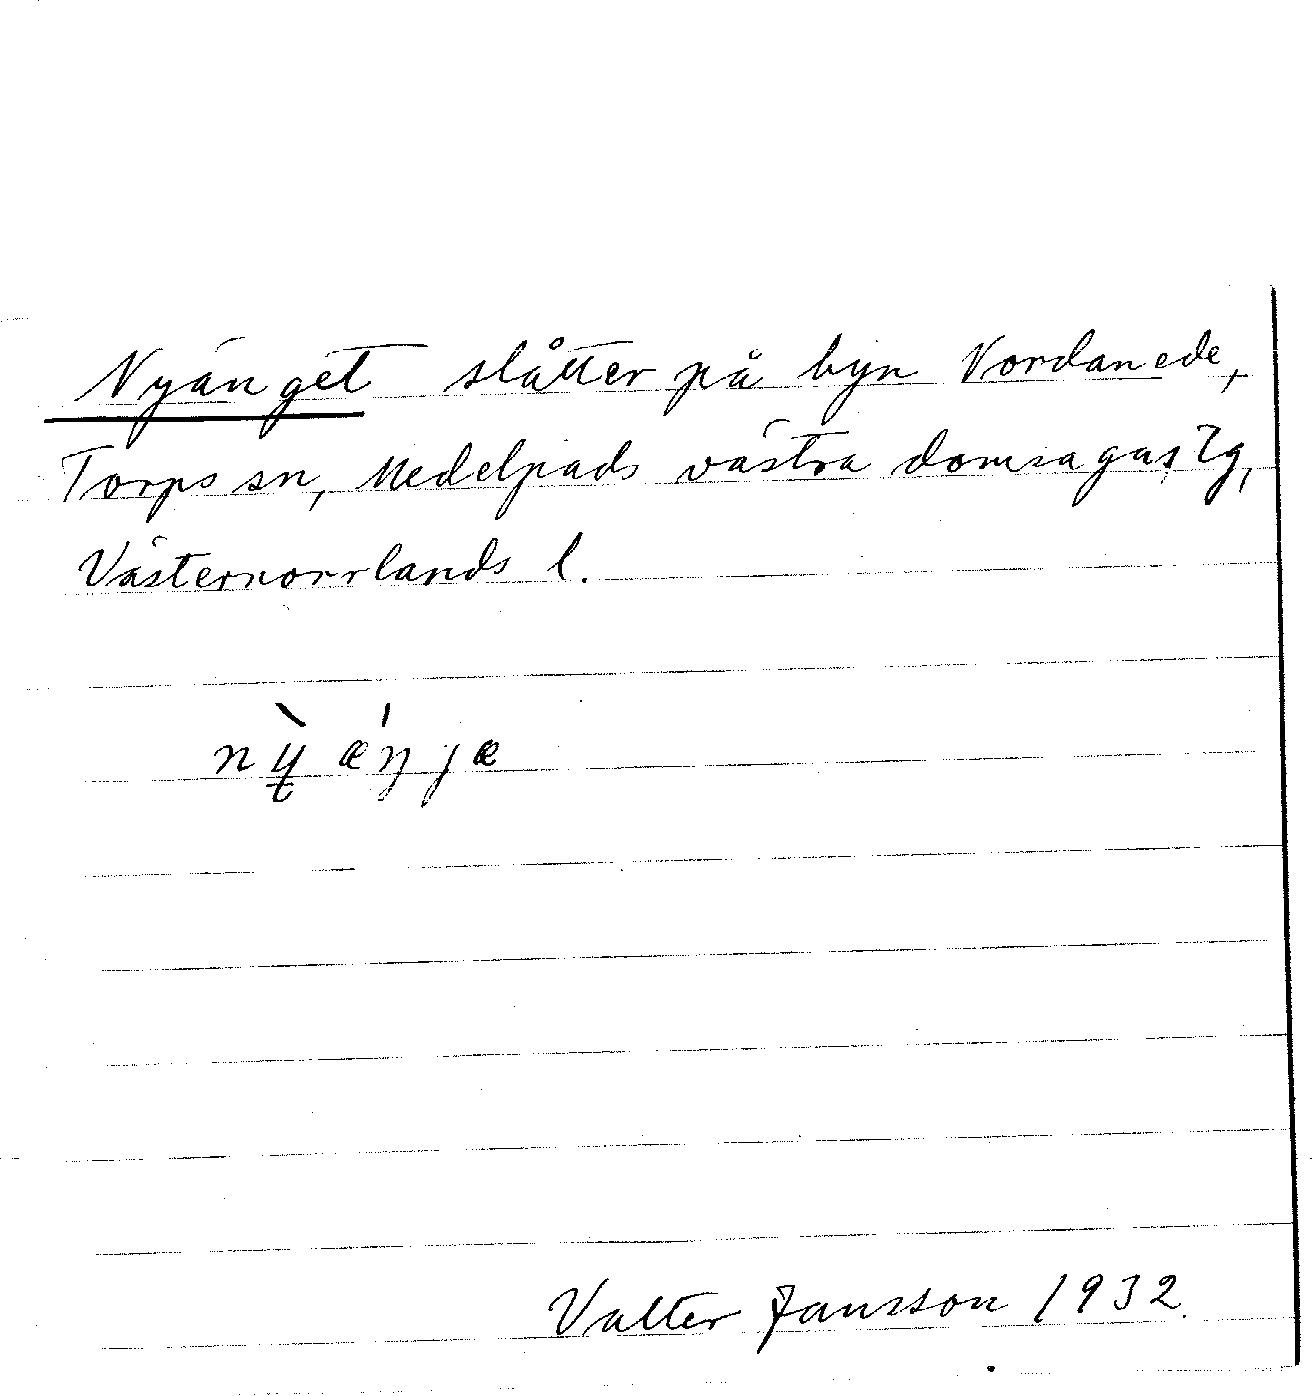 Nyänget slåtter på byn Vordanede,
Torps sn, Medelpads västra domsagas tg,
Västernorrlands l.
nỳæ̀ŋjæ
Valter Jansson 1932.